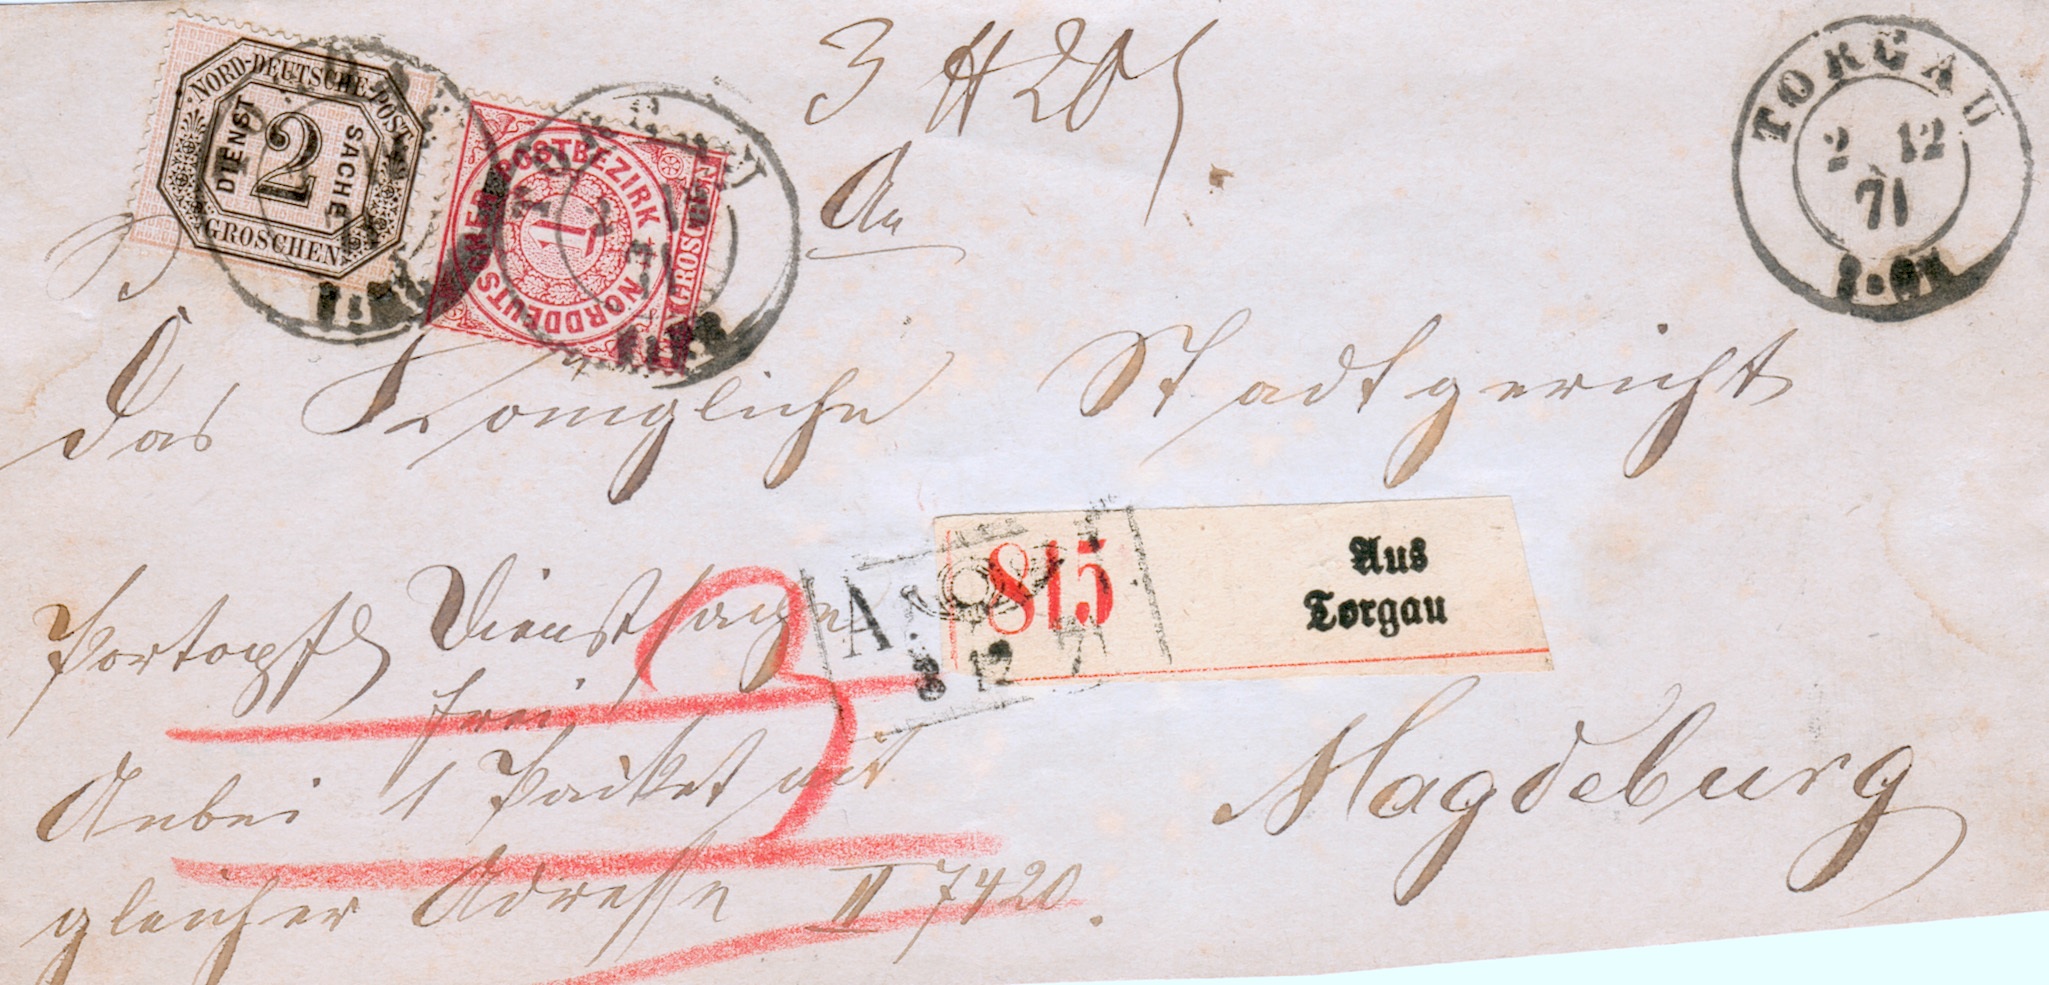 NORD-DEUTSCHE-POST
DIENST 2 SACHE
GROSCHEN
NORDDEUTSCHER POSTBEZIRK
1
GROSCHEN
TORGAU
2 12
71
3 ℔ 20
An
das Königliche Stadtgericht
815
Aus
Torgau
A
3 12 71
portopfl Dienstsache
frei
Magdeburg
Anbei 1 Packet mit
gleicher Adresse II 7420.